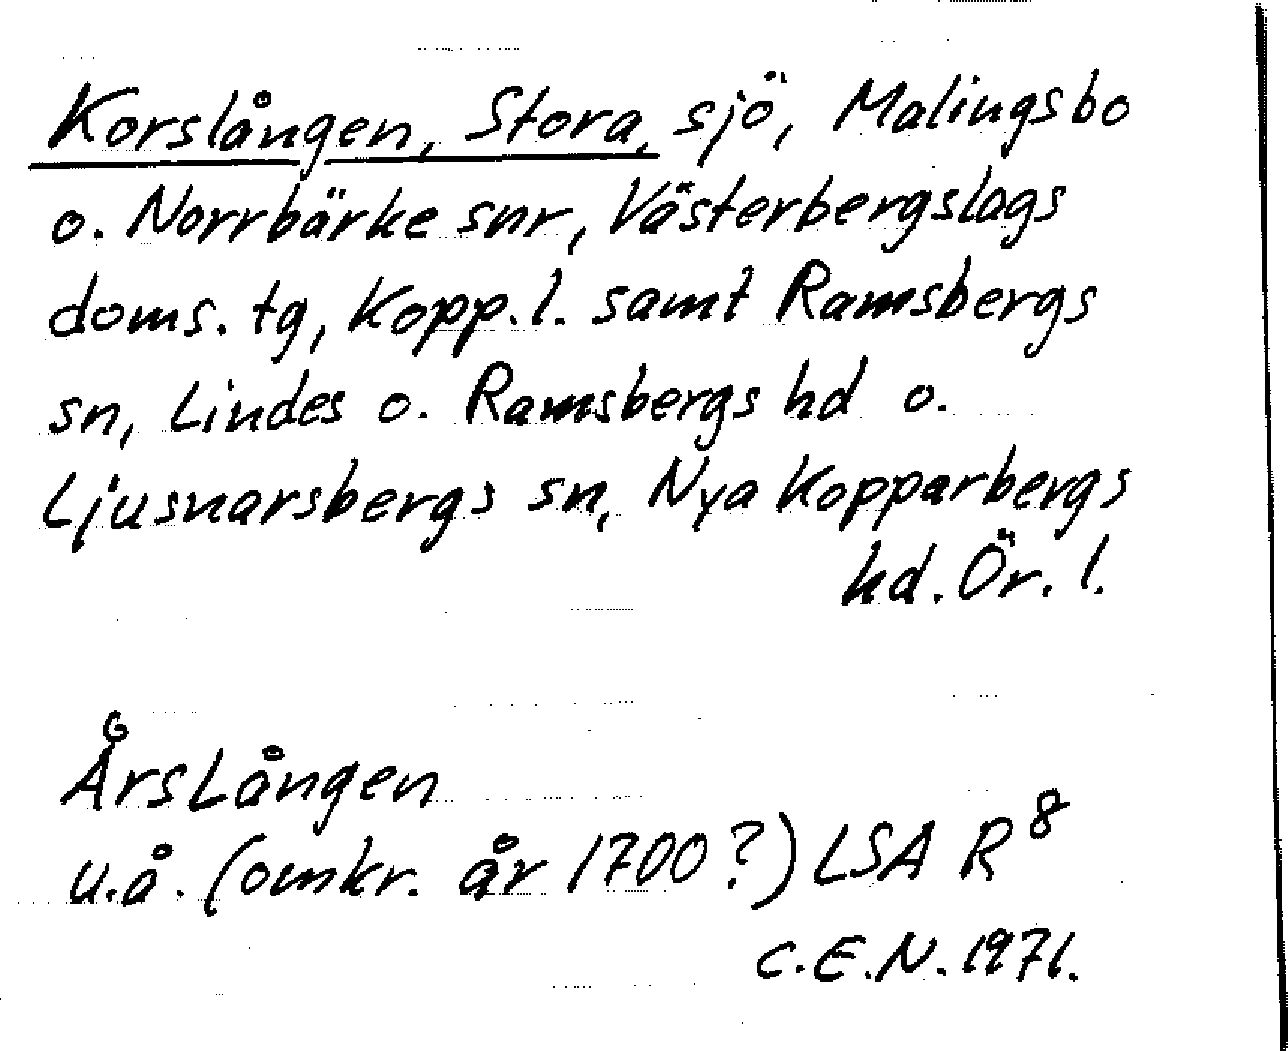 Korslången, Stora, sjö, Malingsbo
o. Norrbärke snr, Västerbergslags
doms. tg, Kopp. l. samt Ramsbergs
sn, Lindes o. Ramsbergs hd o.
Ljusnarsbergs sn, Nya Kopparbergs
hd. Ör. l.
ÅrsLången
u.å. (omkr. år 1700?) LSA R⁸
C.E.N. 1971.